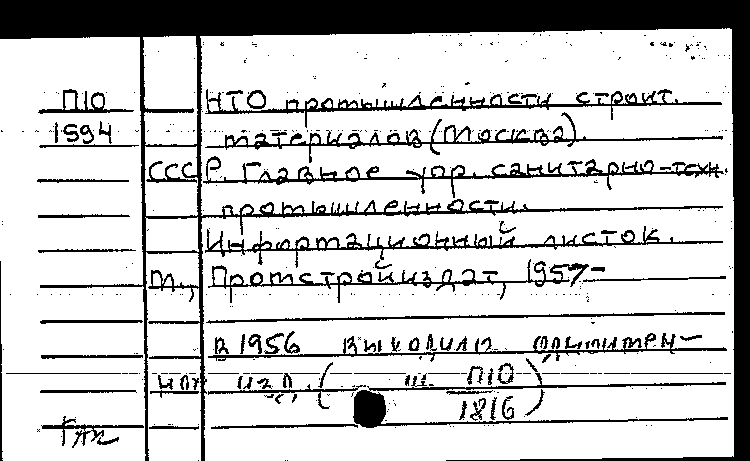 П10 НТО промышленности строит.
1594 материалов (Москва).
СССР. Главное упр. санитарно-техн.
промышленности.
Информационный листок.
М., Промстройиздат, 1957-
В 1956 выходило одноимен-
ное изд. ( ш. П10
1816)